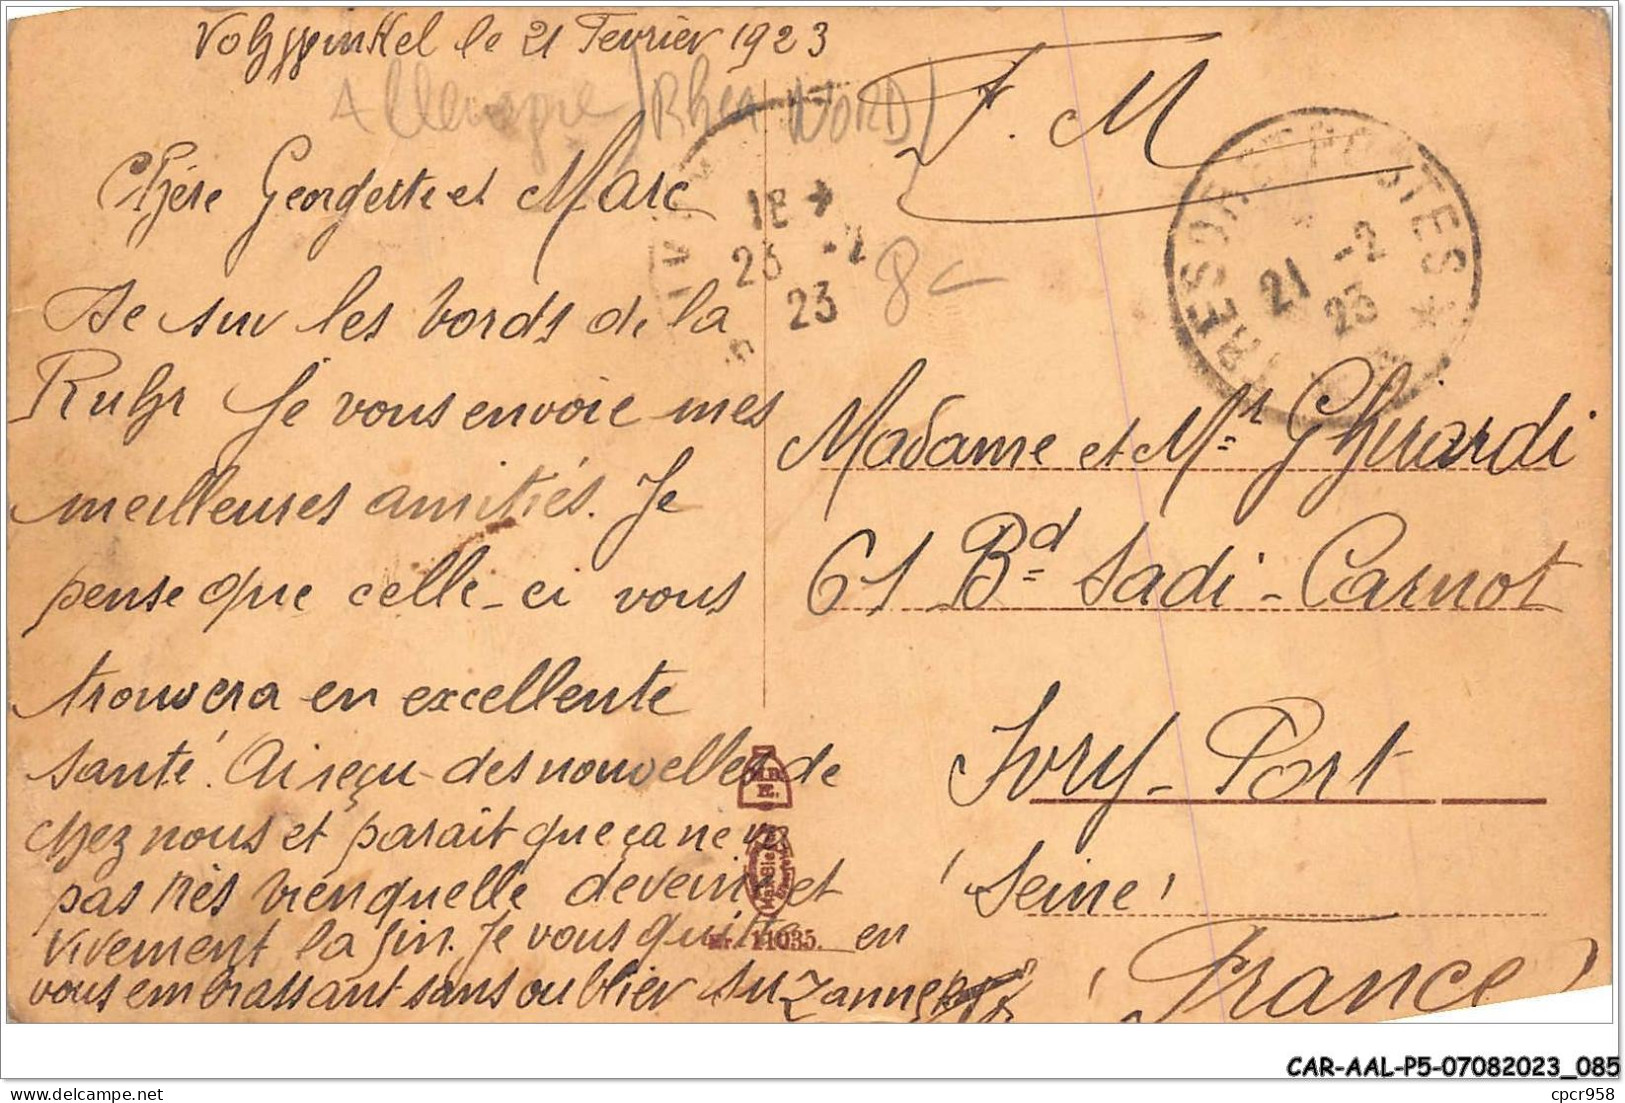 le 21 Fevrièr 1923
Allemagne (Rhea NORD)
F. M
Chère Georgette et Marc
De sur les bords de la
Ruhr Je vous envoie mes
meilleures amitiés. Je
pense que celle-ci vous
trouvera en excellente
santé. Ai reçu des nouvelles de
chez nous et parait que ça ne va
pas très bien quelle deveine et
vivement la fin. Je vous quitte en
vous embrassant sans oublier Suzanne
18
23 -2
23
8
TRESOR ET POSTES
21 -2
23
Madame et Mr Ghirardi
61 Bd Sadi-Carnot
Ivry-Port
(Seine)
(France)
Nr. 11035.
CAR-AAL-P5-07082023_085
cpcr958